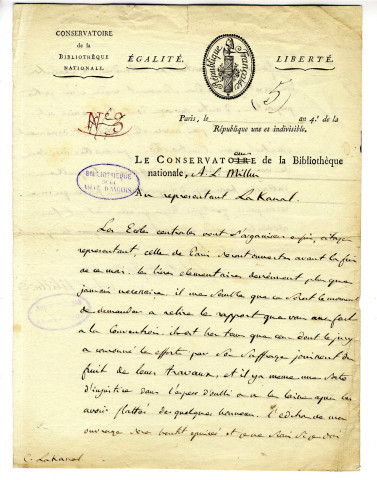 CONSERVATOIRE
de la
BIBLIOTHÈQUE
NATIONALE.
ÉGALITÉ.
République Française
LIBERTÉ.
(5)
Paris, le an 4.e de la
République une et indivisible.
LE CONSERVATOIRE de la Bibliothèque
nationale, A. L. Millin
BIBLIOTHEQUE
DE LA
VILLE D'ANGERS
Au representant Lakanal.
Les Ecoles centrales vont s'organiser enfin, citoyen
representant, celle de Paris seront ouvertes avant la fin
de ce mois. les livres elementaires deviennent plus que
jamais necessaires il me semble que ce seroit le moment
de demander a relire le rapport que vous avez fait
a la Convention. il est bon tems que ceux dont le jury
a couronné les efforts par son suffrage jouissent du
fruit de leurs travaux, et il y a meme une sorte
d'injustice dans l'espece d'oubli ou on les laisse après les
avoir flattés de quelques honneurs. l'edition de mon
ouvrage sera bientot epuisée et je ne sais si je dois
C. Lakanal